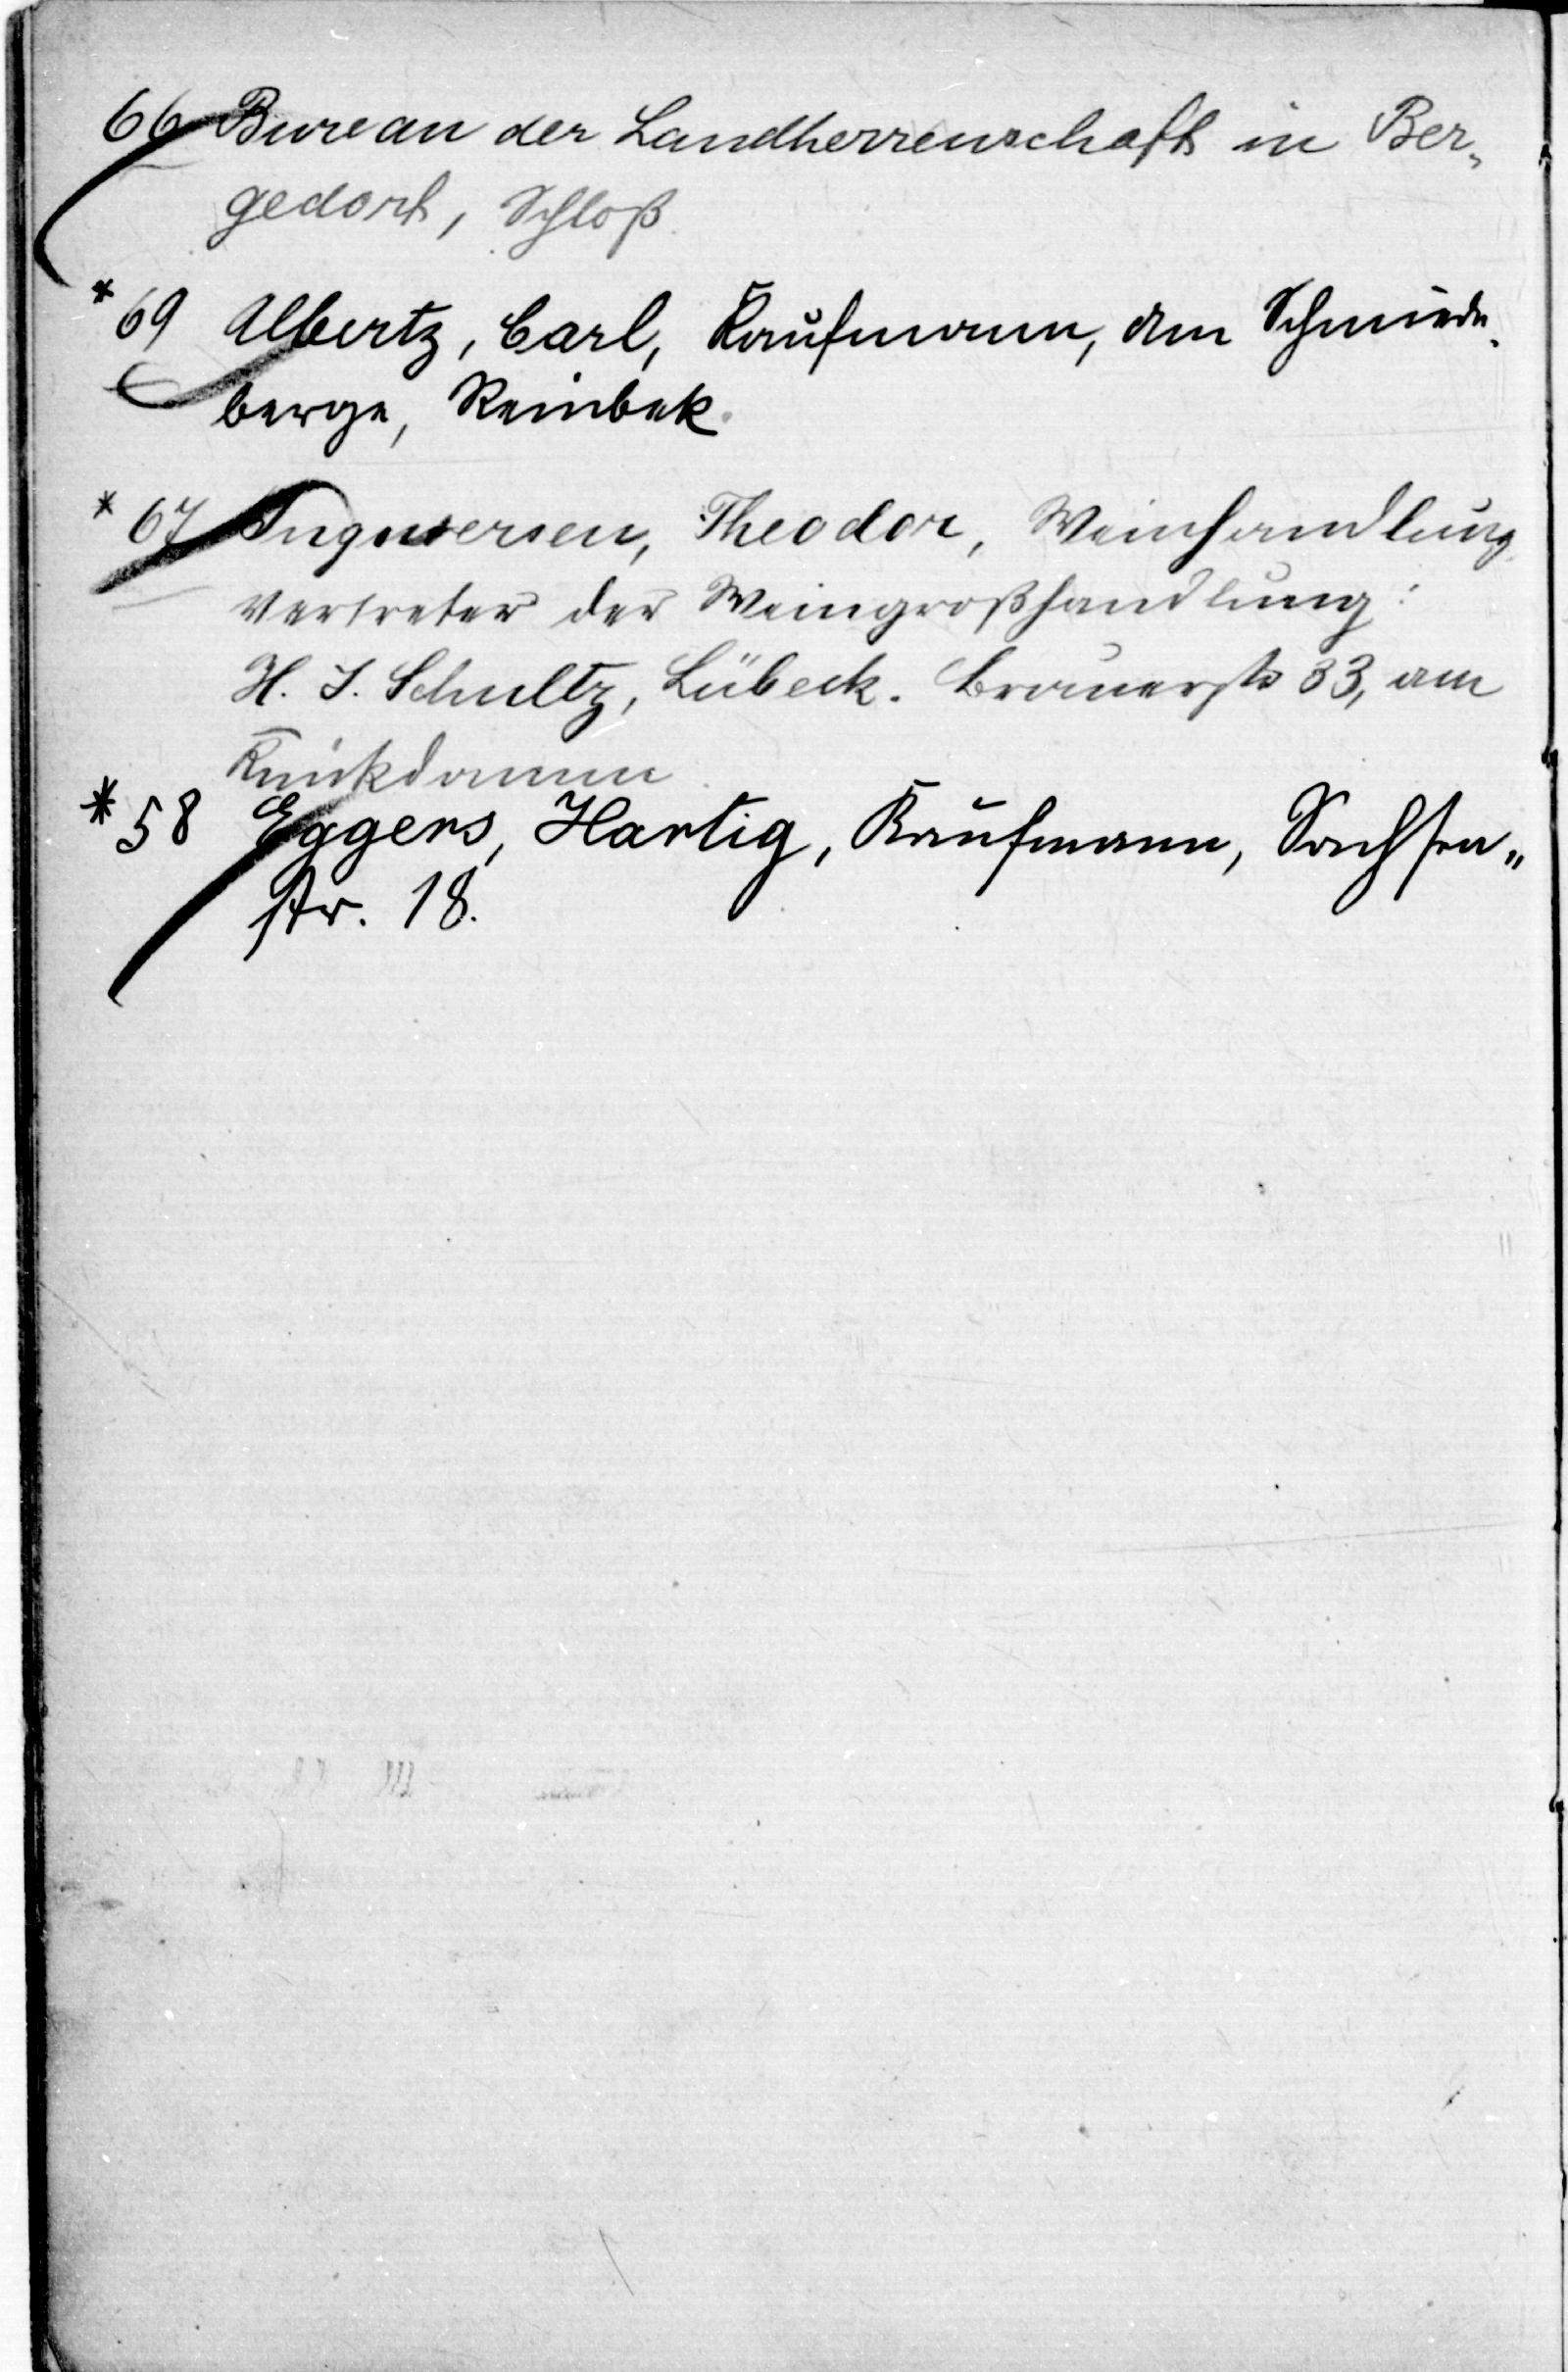 66 Bureau der Landherrenschaft in Ber-
gedorf, Schloß.
* 69 Albertz, Carl, Kaufmann, am Schmiede-
berge, Reinbek.
* 67 Ingwersen, Theodor, Weinhandlung,
Vertreter der Weingroßhandlung:
H. J. Schultz, Lübeck. Brauerstr 33, am
Kuickdamm
* 58 Eggers, Hartig, Kaufmann, Sachsen-
str. 18.